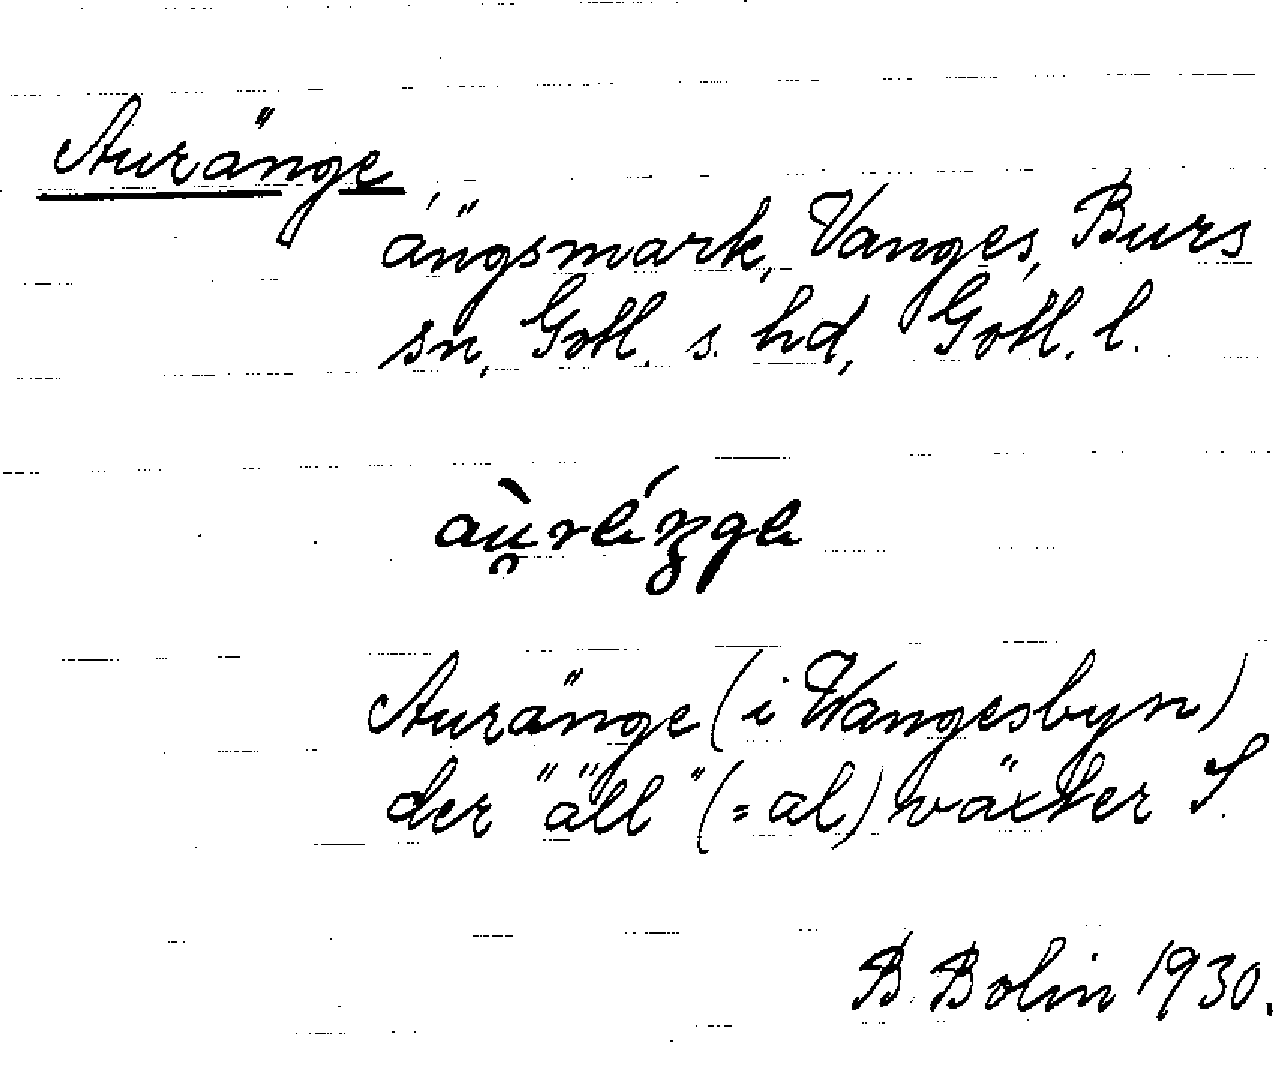 Auränge
ängsmark, Vanges, Burs
sn, Gotl. s. hd, Gotl. l.
Auränge (i Wangesbyn)
der "äll" (= al) wäxter S.
B. Bolin 1930.